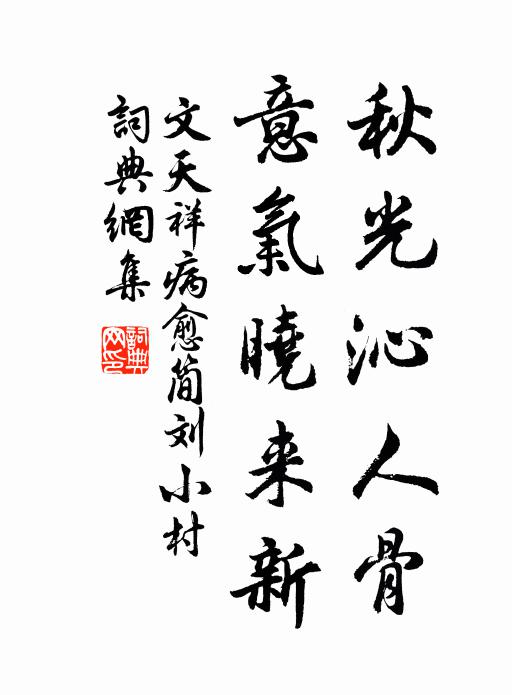 秋光沁人骨
意氣曉来新
文天祥病愈简刘小村
詞典網集
詞典网印